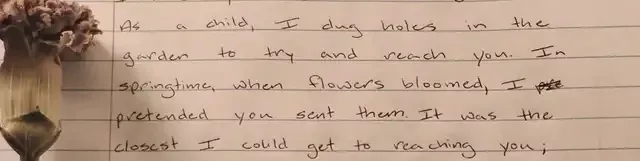 As a child, I dug holes in the
garden to try and reach you. In
springtime, when flowers bloomed, I
pretended you sent them. It was the
closest I could get to reaching you;